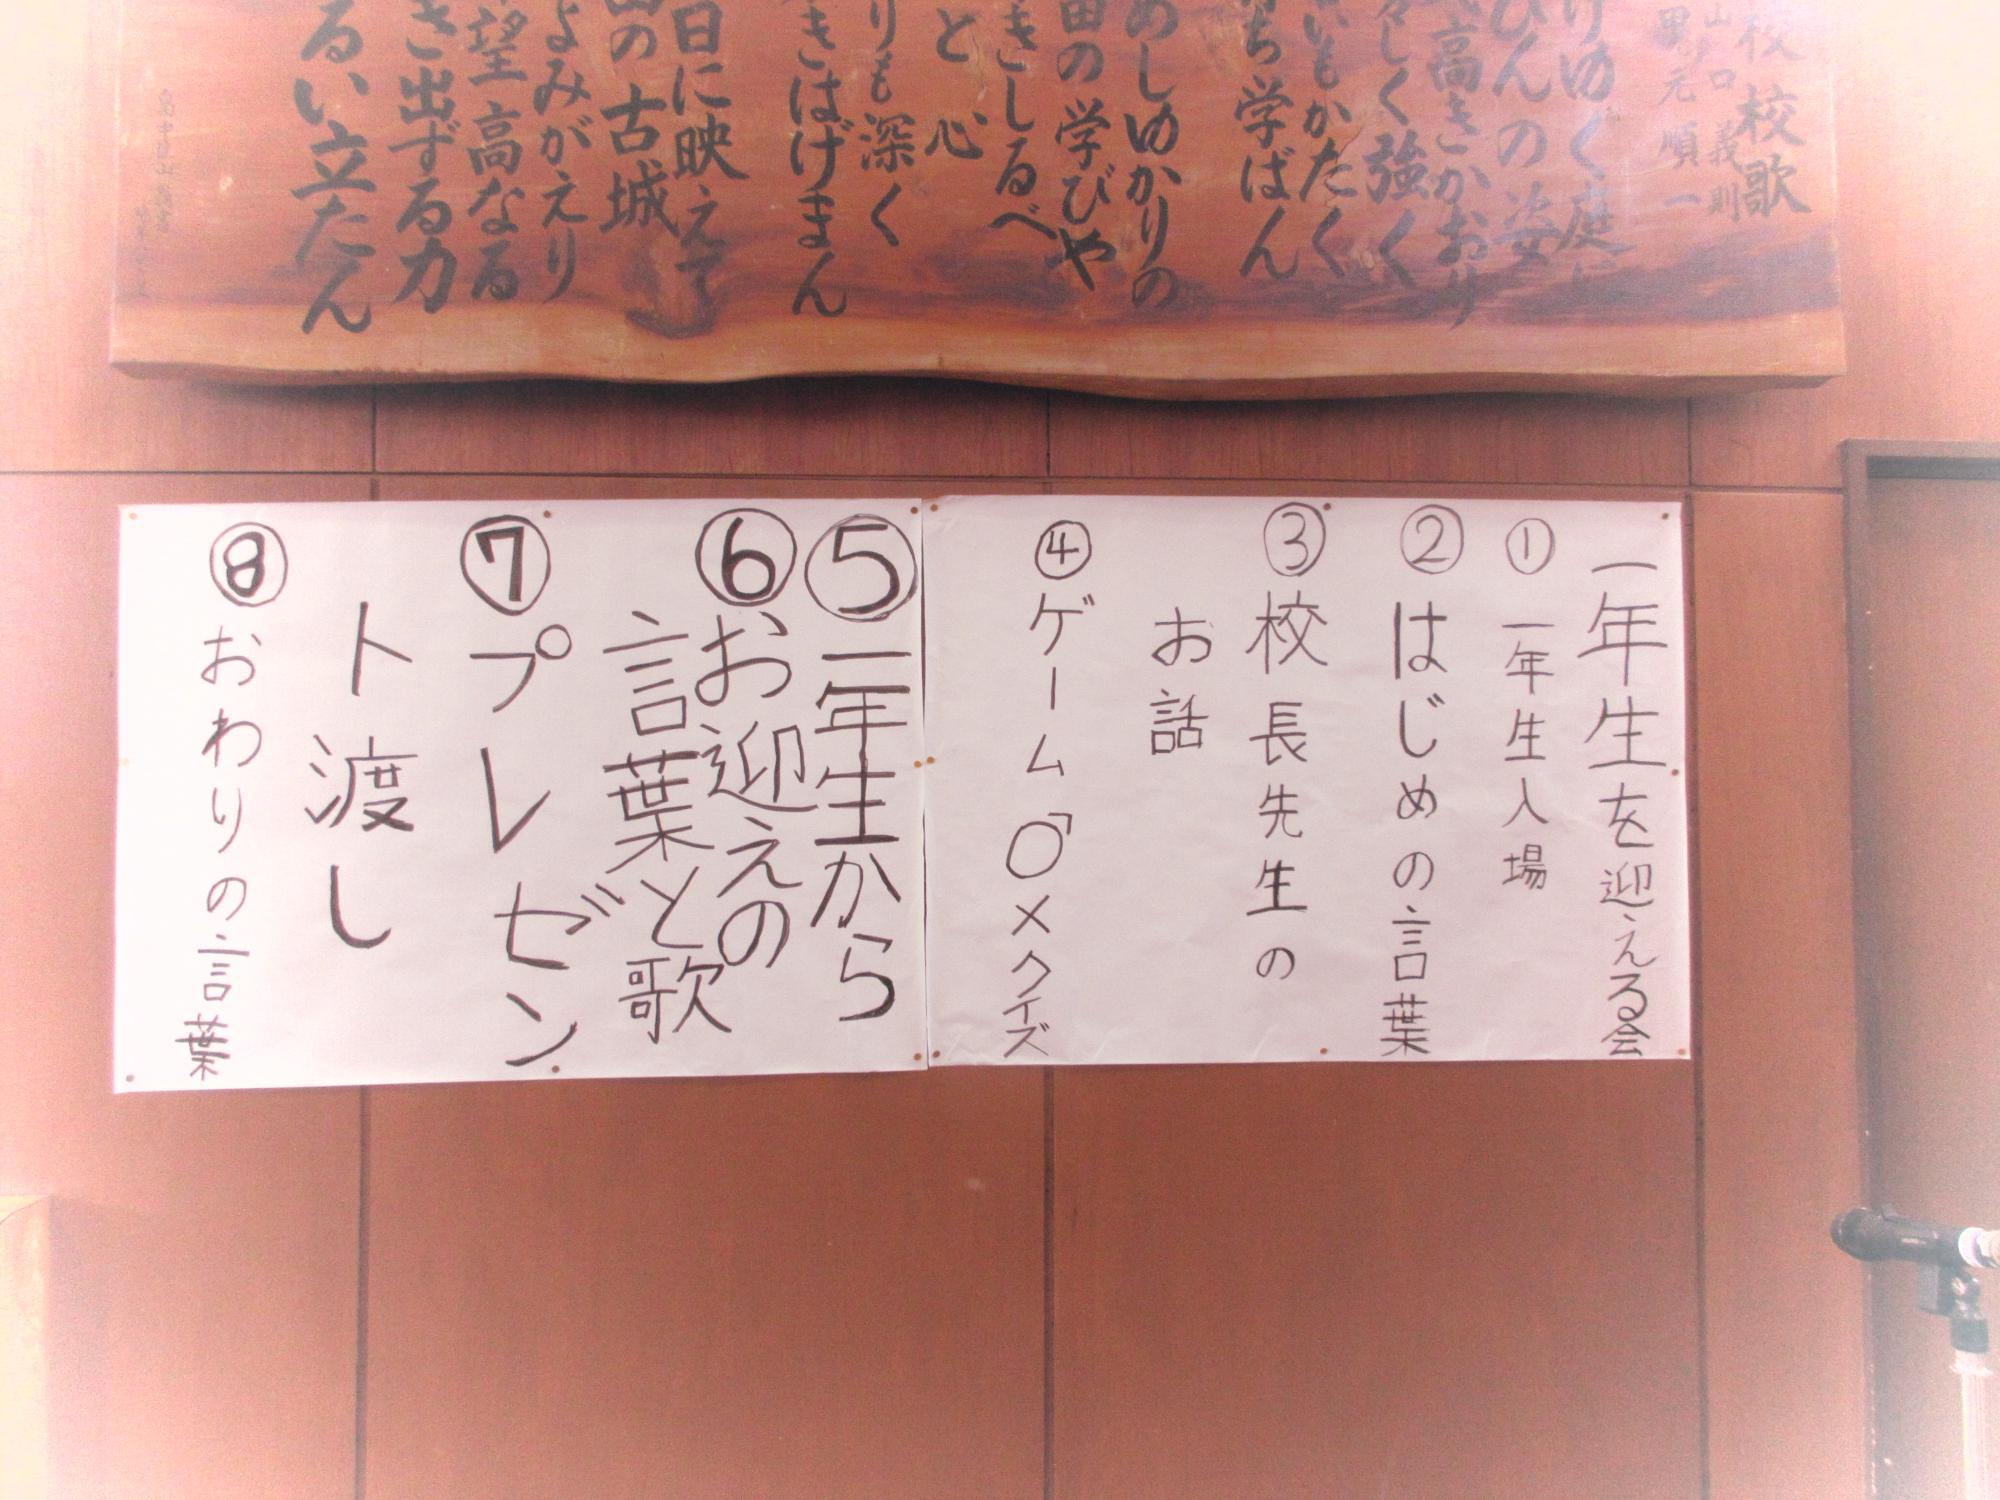 校校歌
山口義則
元順一
りゆく庭に
びんの姿
高きかおり
々しく強く
いもかたく
ち学ばん
めしゆかりの
田の学びや
きしるべ
と心
りも深く
きはげまん
日に映えて
の古城
よみがえり
望高なる
き出ずる力
るい立たん
一年生を迎える会
① 一年生入場
② はじめの言葉
③ 校長先生の
お話
④ ゲーム○×クイズ
⑤ 一年生から
⑥ お迎えの
言葉と歌
⑦ プレゼン
ト渡し
⑧ おわりの言葉